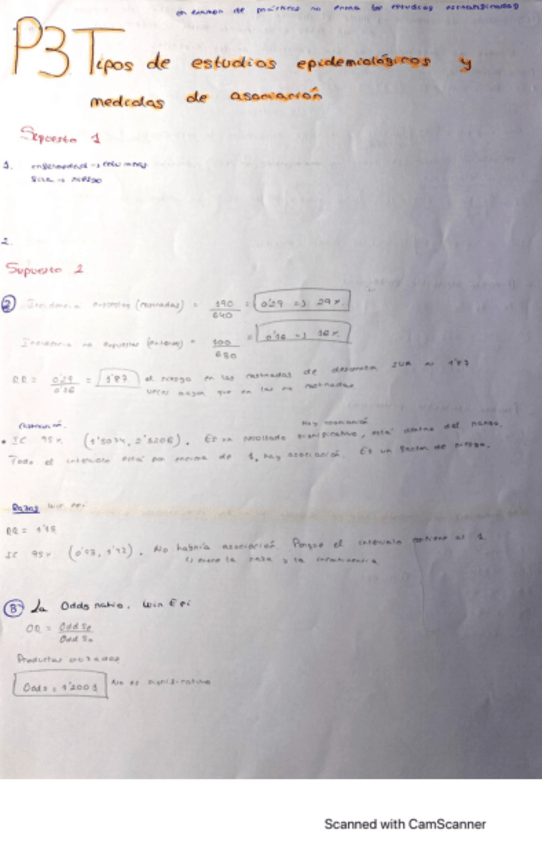 en examen de prácticas no entra los estudios
P3 Tipos de estudios epidemiológicos y
medidas de asociación
Supuesto 1
1. enfermedad → columnas
2.
Supuesto 2
② Incidencia expuestos (castradas) = 190/640 = 0'29 => 29%
Incidencia no expuestos (enteras) = 100/630 = 0'16 => 16%
RR = 0'29/0'16 = 1'87 el riesgo en las castradas de desarrollar IUR es 1'87
veces mayor que en las no castradas
Hay asociación
• IC 95% (1'5034, 2'3206). Es un resultado significativo, está dentro del rango.
Todo el intervalo está por encima de 1, hay asociación. Es un factor de riesgo.
Razas Win Epi
RR = 1'18
IC 95% (0'83, 1'72). No habría asociación. Porque el intervalo contiene al 1
entre la raza y la incontinencia
③ La Odds ratio, Win Epi
OR = Odds / Odds
Productos cruzados
Odds = 1'2001 No es significativo
Scanned with CamScanner